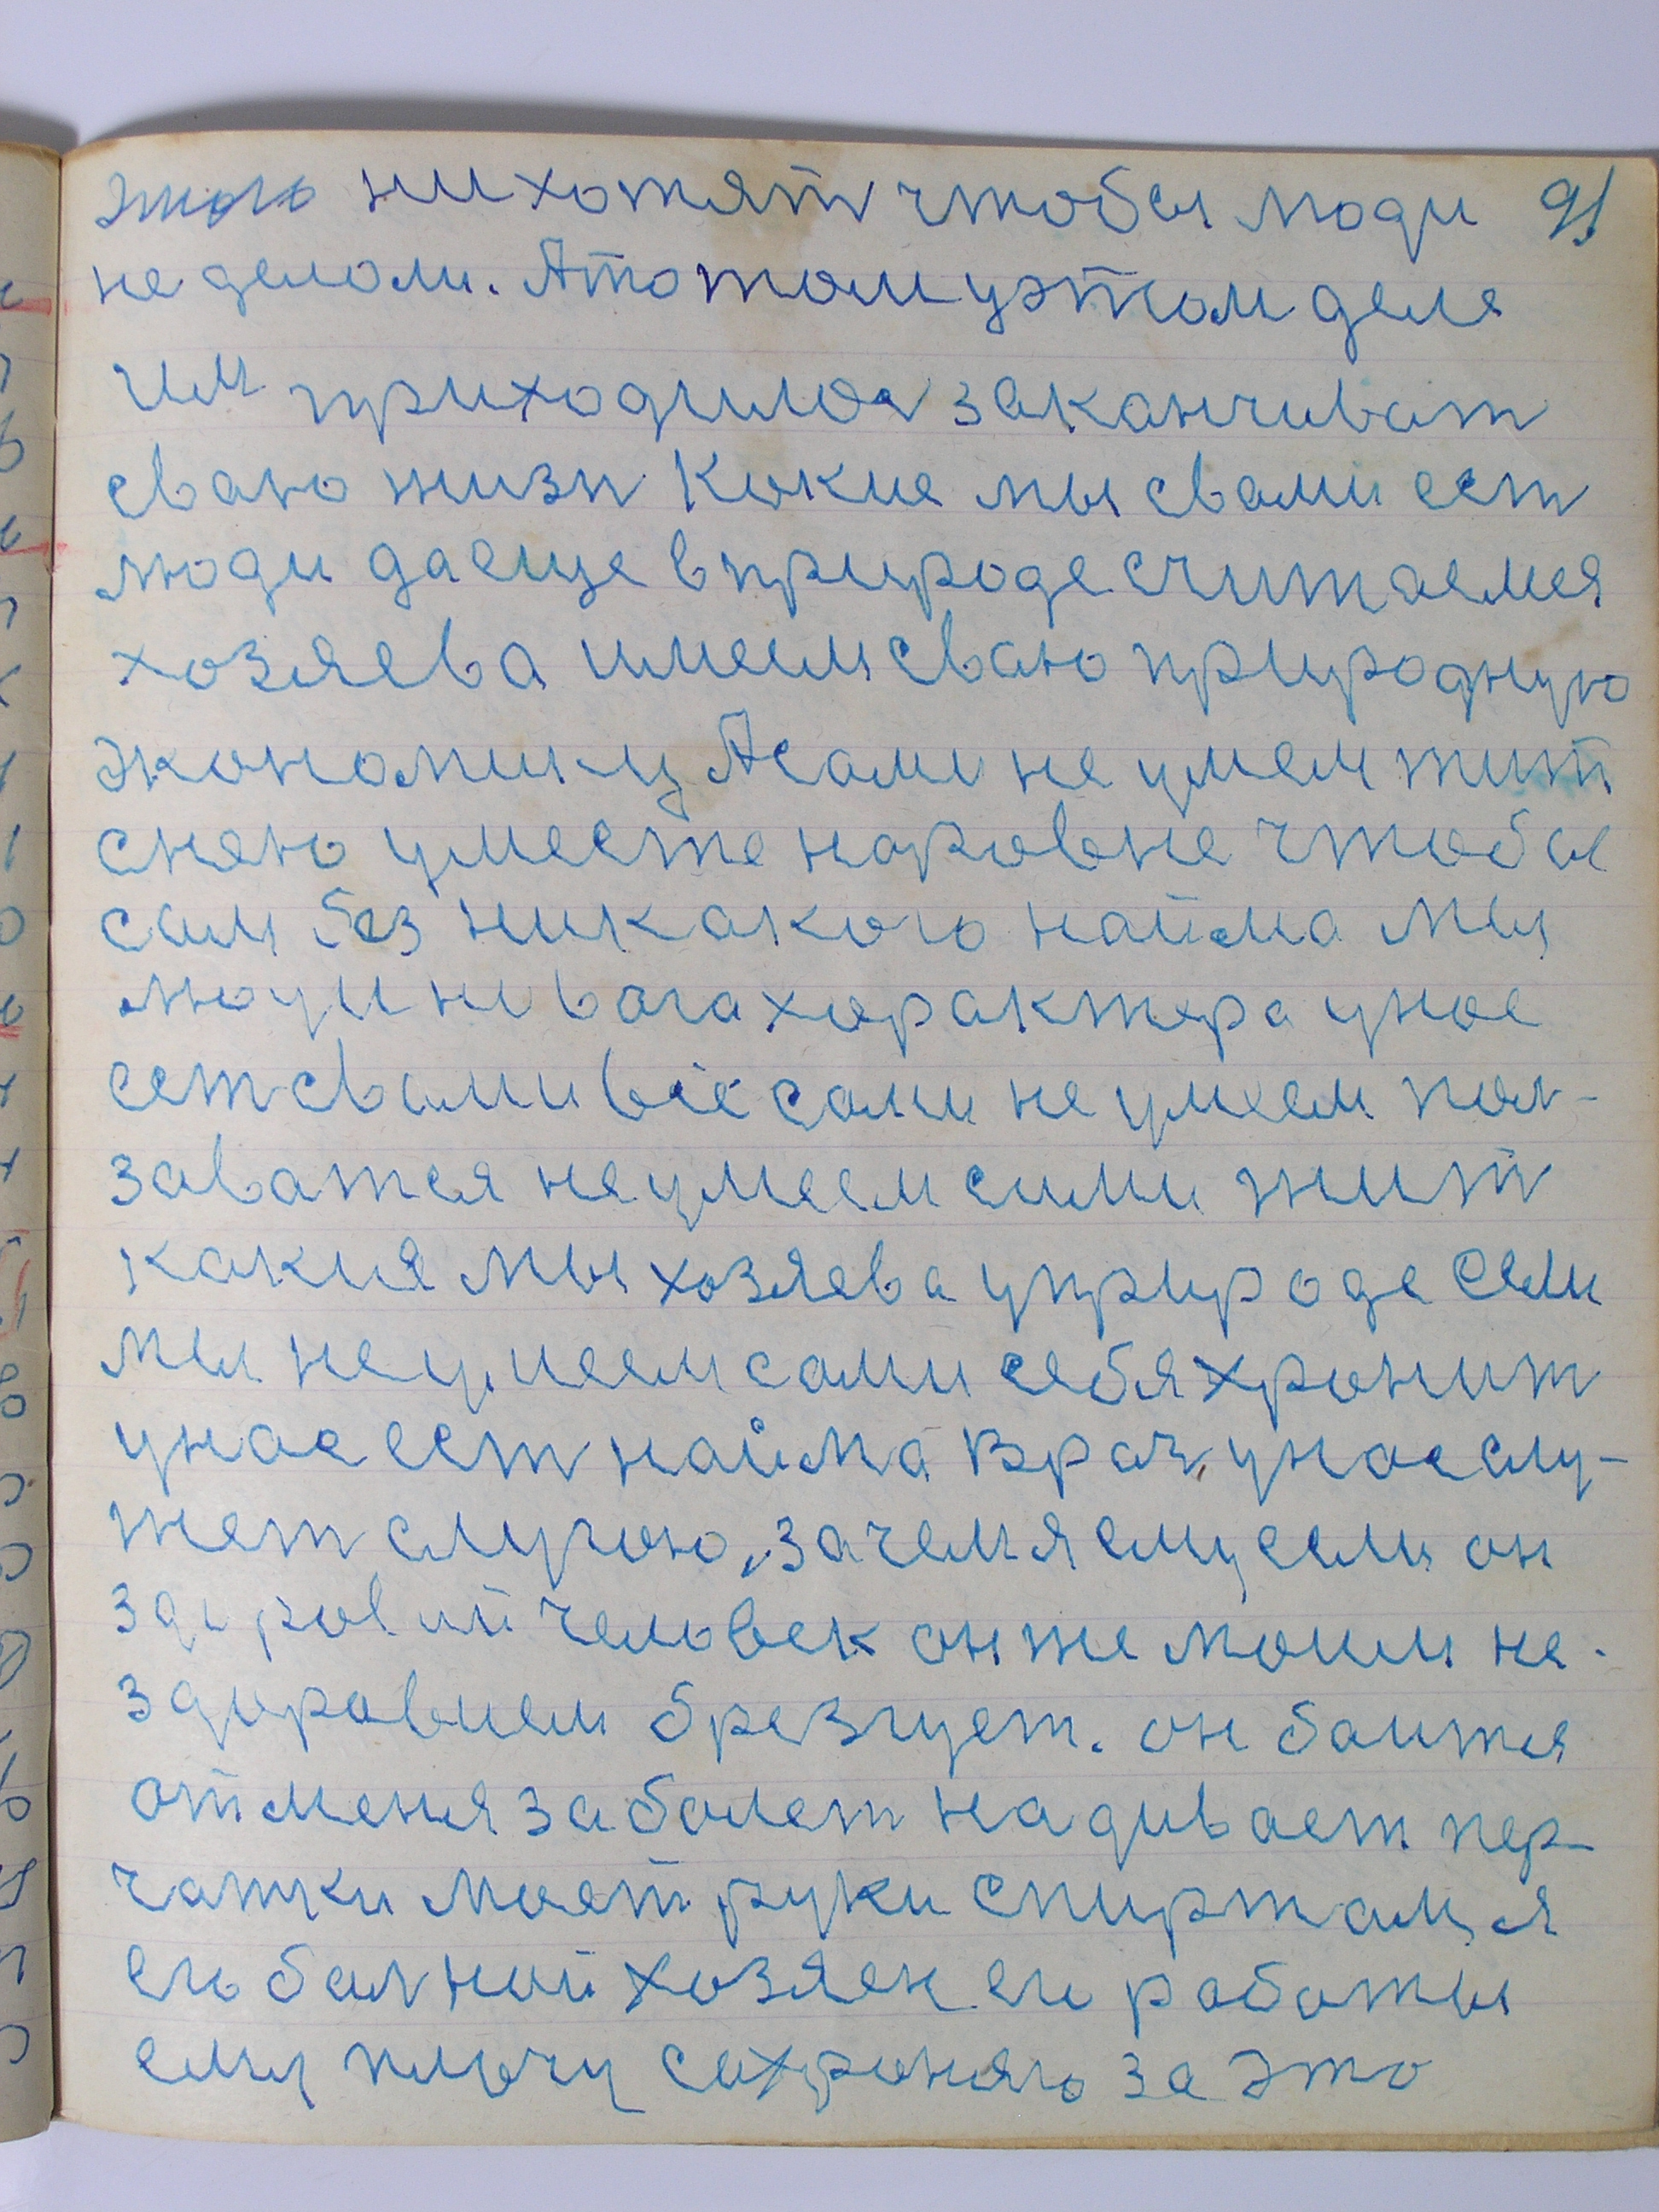 этого ни хотят чтобы люди 91
не делоли. А то потом у этом деля
им приходилося заканчиват
сваю жизн Кокие мы свами ест
люди да еще в природе считаемся
хозяева имеем сваю природную
экономику А сами не умеем жит
снею уместе наровне чтобы
сам без никакого найма мы
люди хорактера унас
ест свами все сами не умеем пол-
заватся не умеем сами жит
какия мы хозяева у природе если
мы не умеем сами себя хронит
унас ест найма врач, унас слу-
жет случаю, зачем я ему если он
здоровий человек он же моим не-
здоровием брезгует. он боится
от меня заболет надивает пер-
чатки моет руки спиртам, я
его болной хозяен его работы
ему плочу сохроняю за это